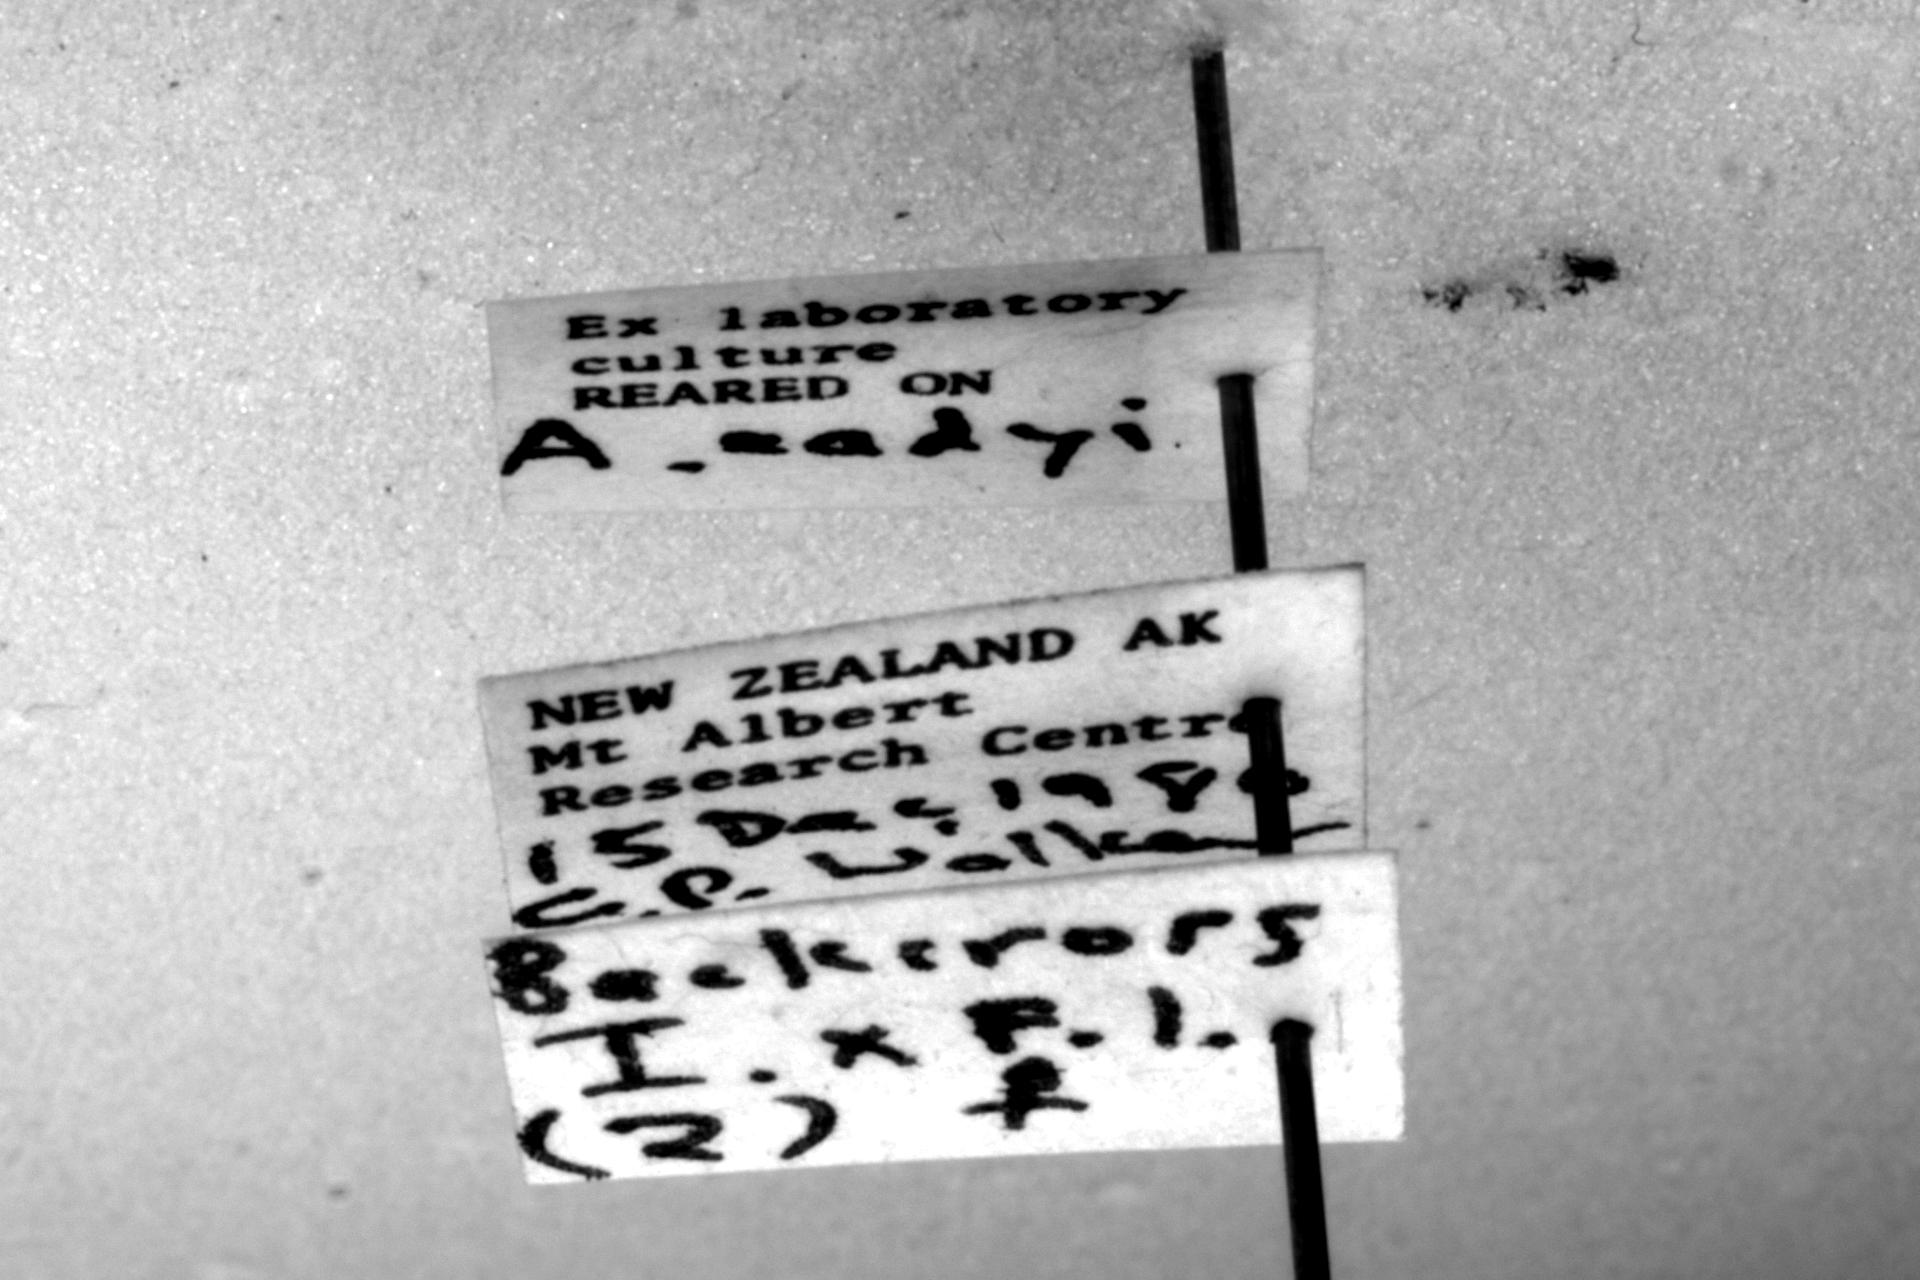 Ex laboratory
culture
REARED ON
A. eadyi
NEW ZEALAND AK
Mt Albert
Research Centre
15 Dec, 1980
G.P. Walker
Backcross
I. x F.1.
(2) ♀